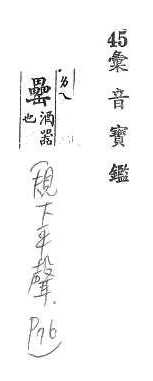 45彙音寶鑑
罍 酒器也
(規下平聲. P76)